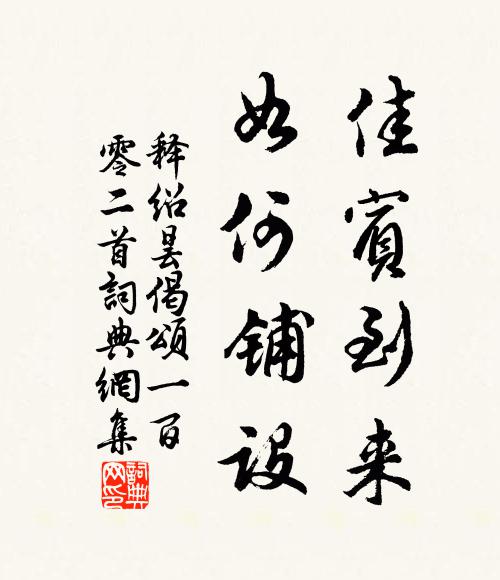 佳賓到来
如何鋪設
释紹昙偈頌一百
零二首詞典網集
詞典
网印